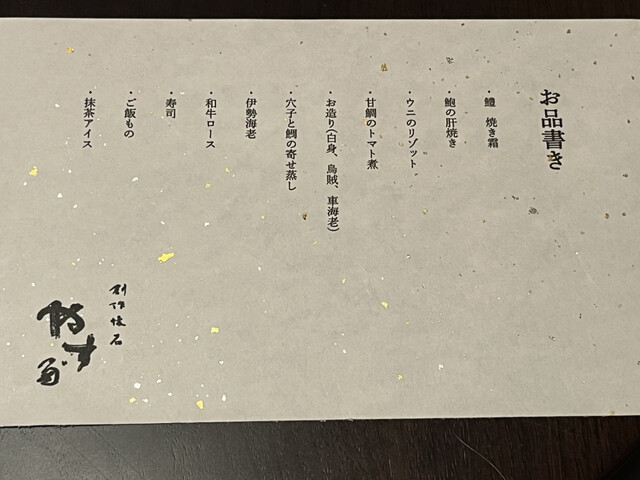 お品書き
・鱧　焼き霜
・鮑の肝焼き
・ウニのリゾット
・甘鯛のトマト煮
・お造り(白身、烏賊、車海老)
・穴子と鯛の寄せ蒸し
・伊勢海老
・和牛ロース
・寿司
・ご飯もの
・抹茶アイス
創作懐石